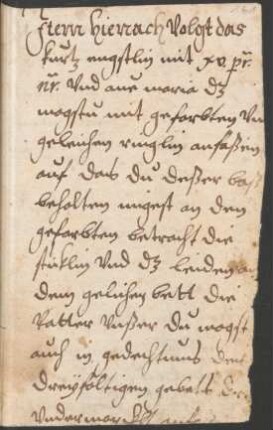 Item hierrach Volgt das
kurtz engstlin mit xv pr.
nr. Vnd aue maria dz
magstu mit geferbten Vn
geleichen ringlin anfassen
auf das du desser bas
behalten migest an den
geferbten betracht die
stucklin Vnd dz leiden
dem gelichen bett die
Vatter Vnser du magst
auch in gedechtnus der
dreyfoltigen gebett